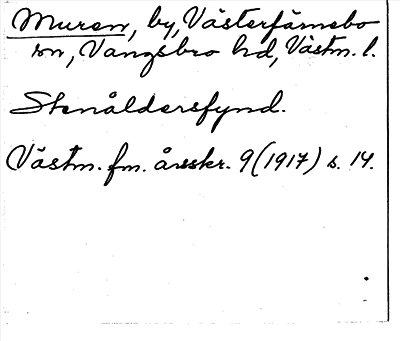 Muren, by, Västerfärnebo
sn, Vangsbro hd, Västm. l.
Stenåldersfynd.
Västm. fm. årsskr. 9 (1917) s. 14.